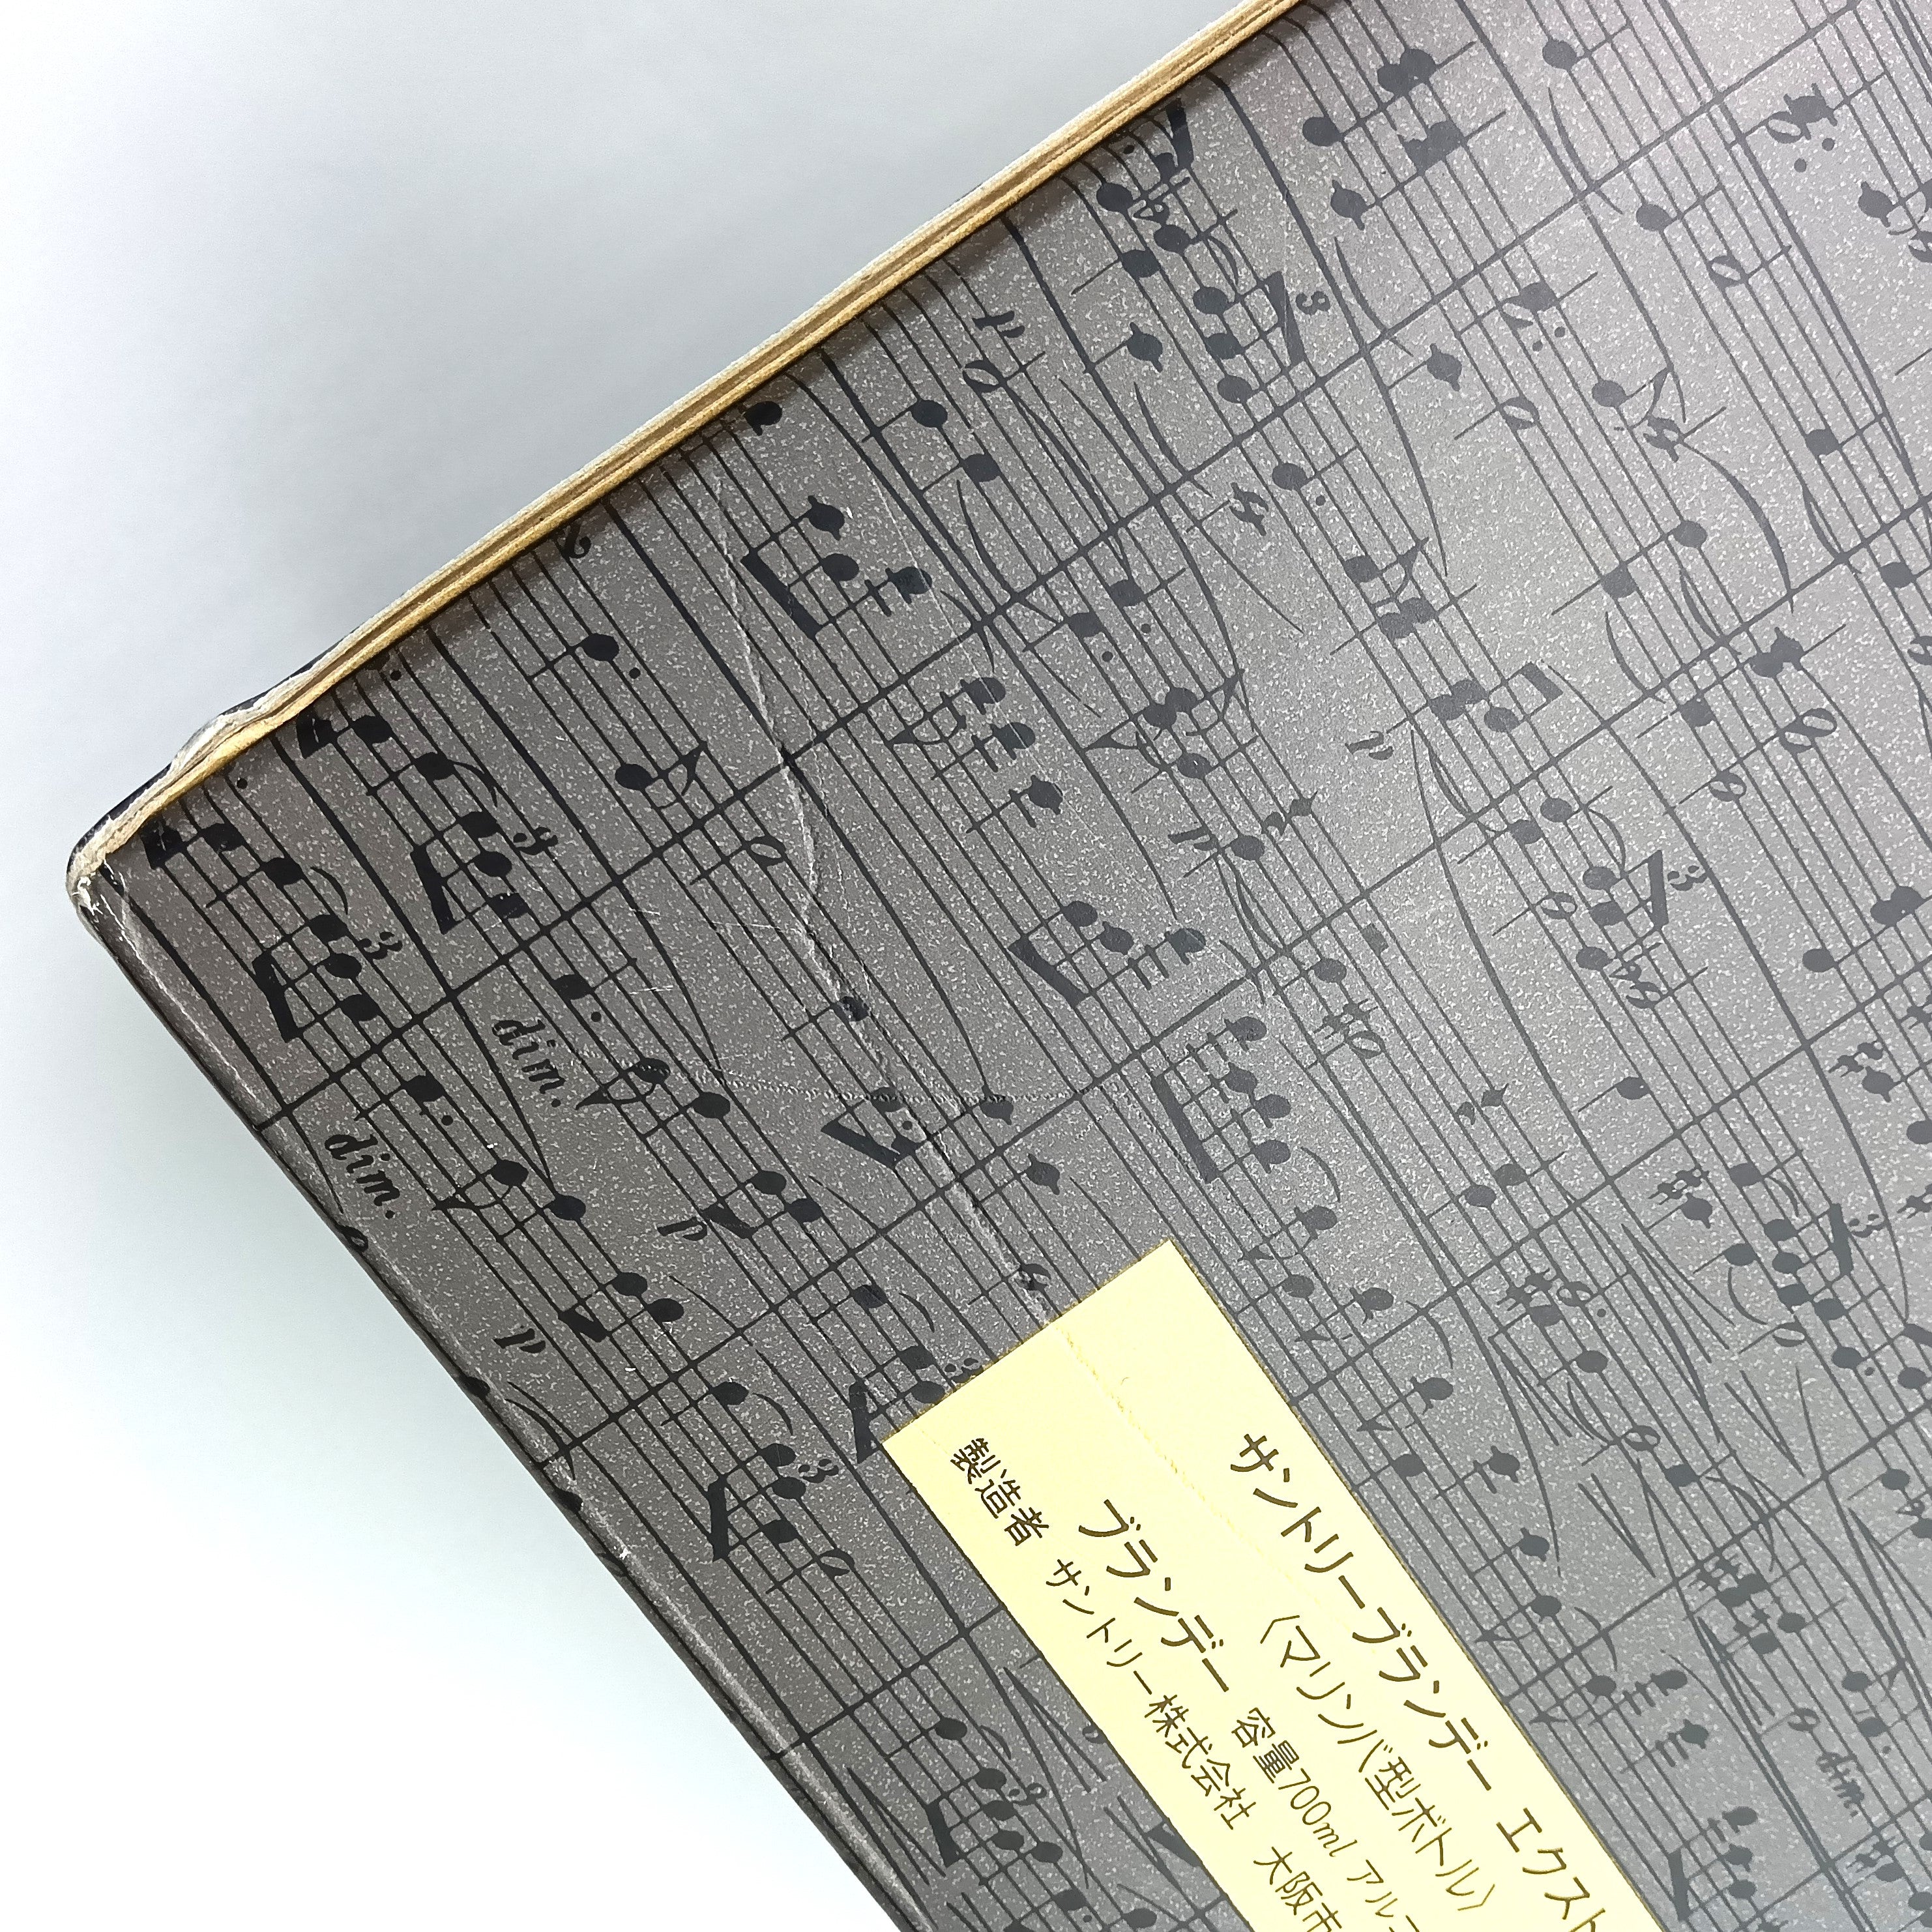 サントリーブランデー エクスト
〈マリンバ型ボトル〉
ブランデー 容量700ml アルコ
製造者 サントリー株式会社 大阪市
dim.
dim.
p
p
p
p
p
3
3
3
3
3
3
dim.